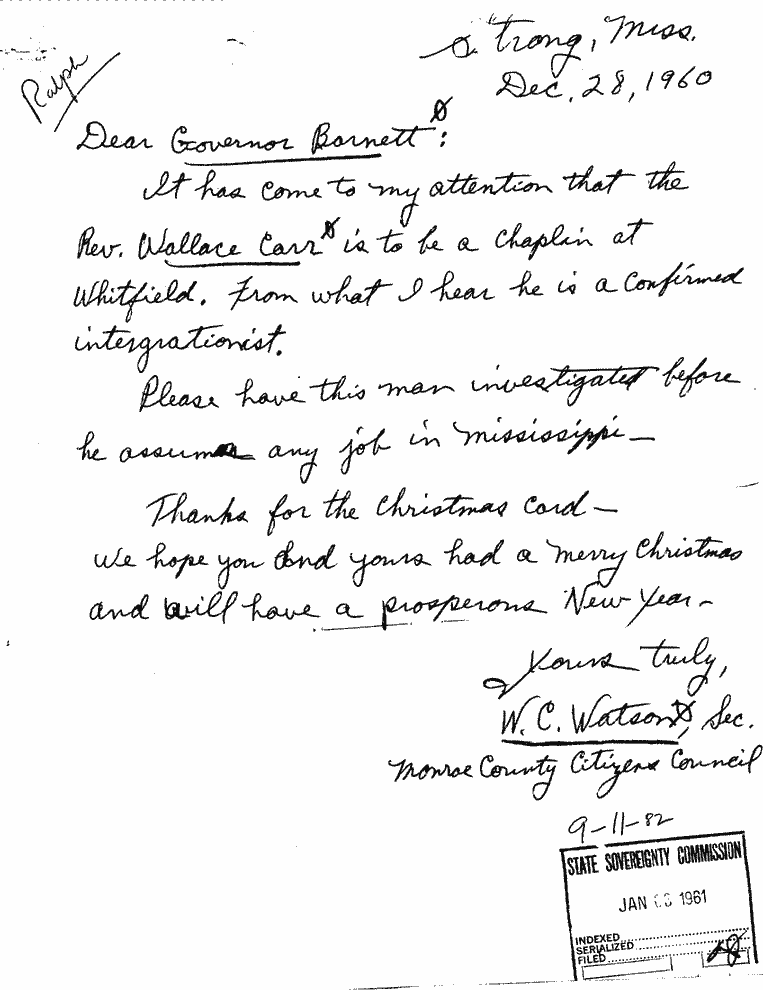 Strong, Miss.
Dec. 28, 1960
Ralph
Dear Governor Barnett:
It has come to my attention that the
Rev. Wallace Carr is to be a chaplin at
Whitfield. From what I hear he is a confirmed
intergrationist.
Please have this man investigated before
he assumes any job in Mississippi—
Thanks for the Christmas card—
We hope you and yours had a merry Christmas
and will have a prosperous New Year—
Yours truly,
W. C. Watson, Sec.
Monroe County Citizens Council
9-11-82
STATE SOVEREIGNTY COMMISSION
JAN 1961
INDEXED
SERIALIZED
FILED